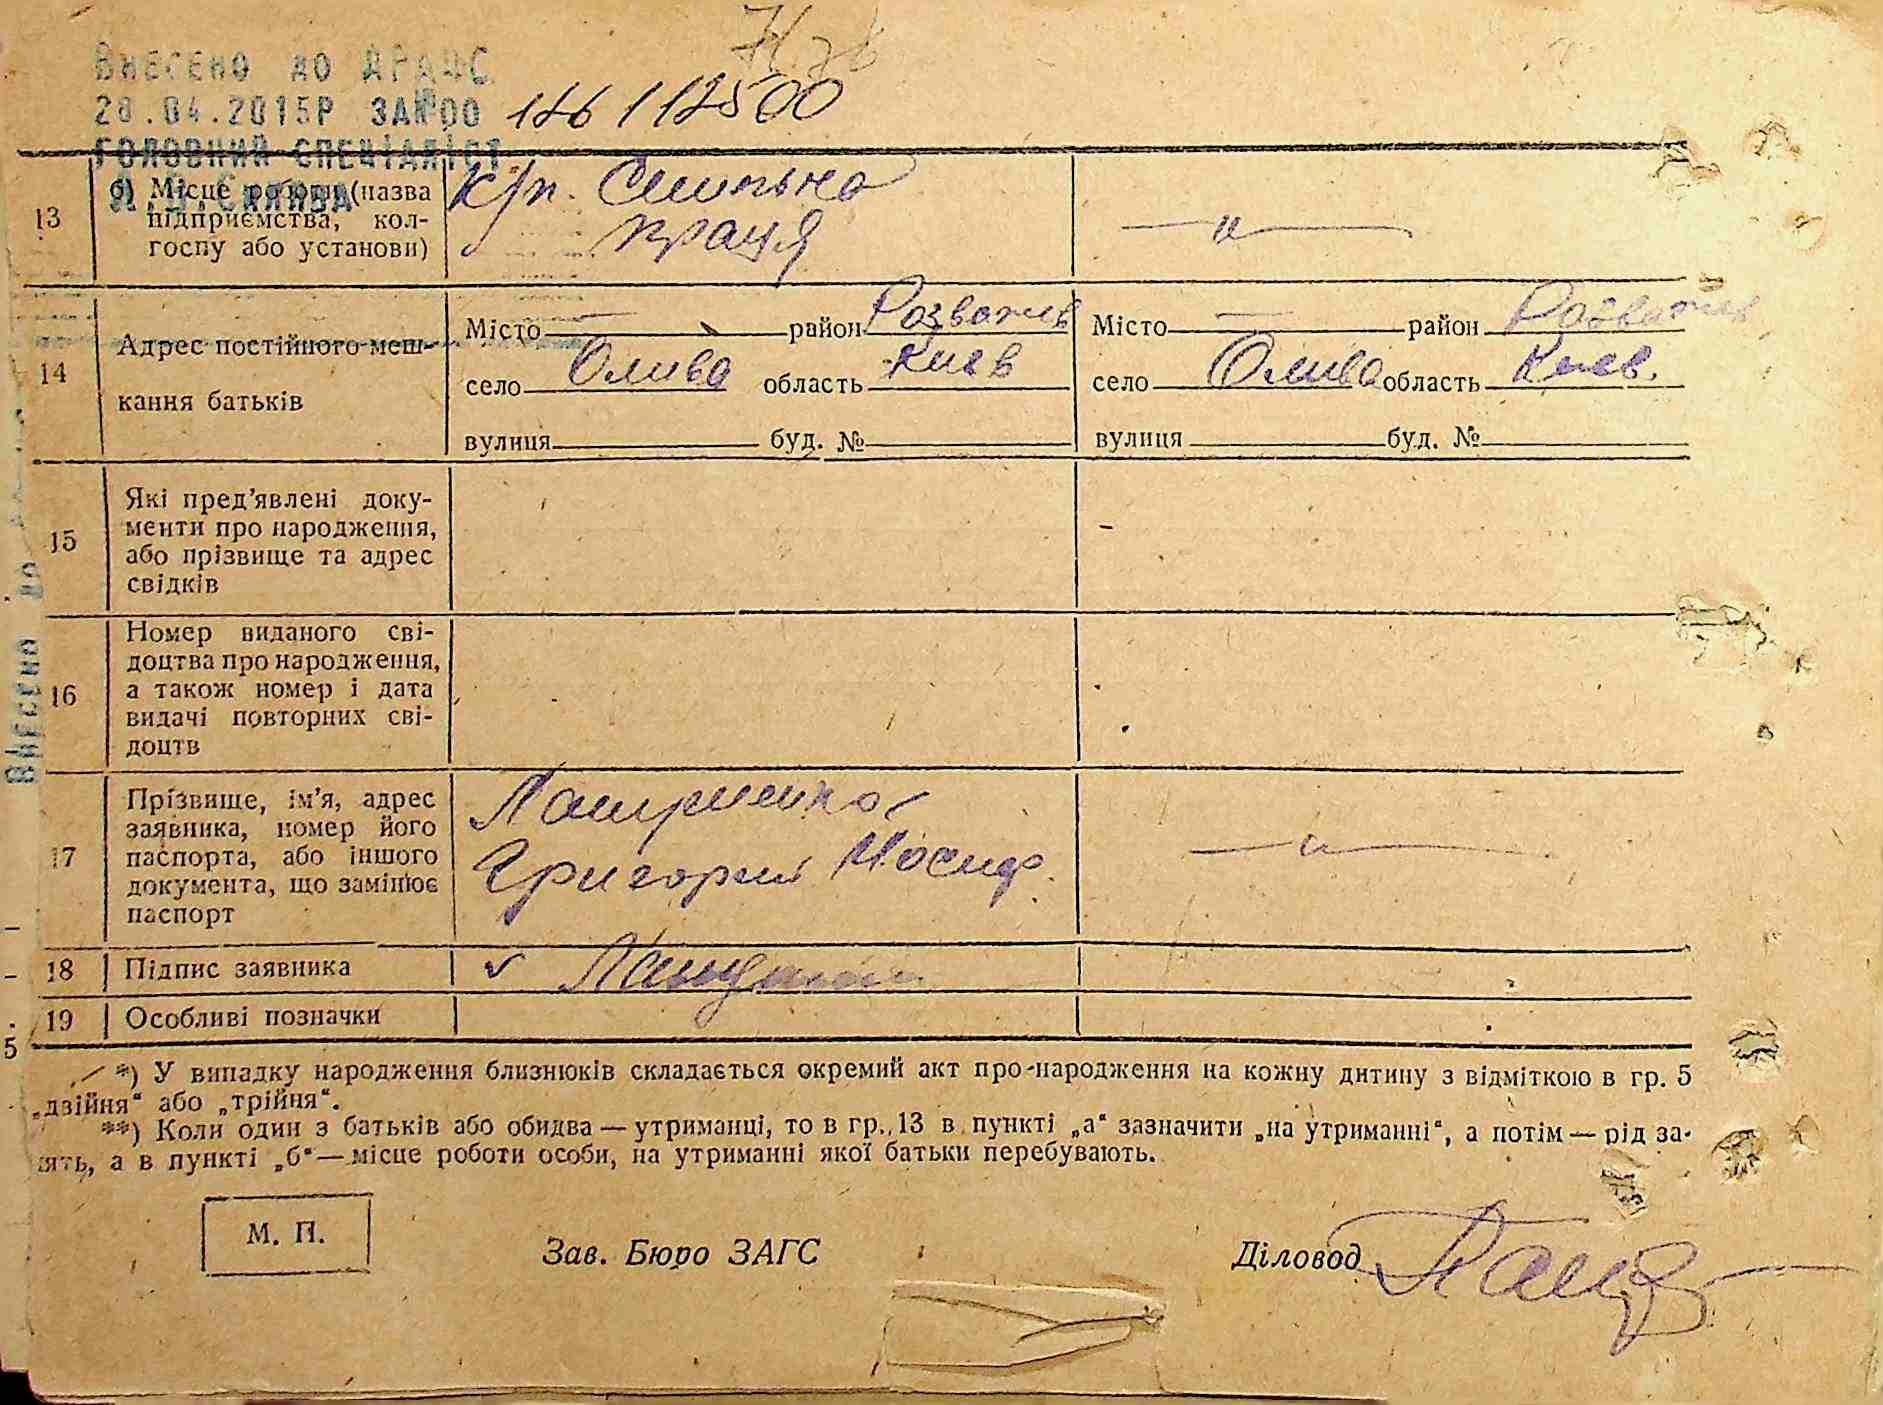 Внесено до ДРАЦС
28.04.2015Р ЗА№00 126 / 12500
ГОЛОВНИЙ СПЕЦІАЛІСТ
13 б) Місце роботи (назва підприємства, кол-
госпу або установи)
к/п. Спільна
праця
—"—
14 Адрес постійного меш-
кання батьків
Місто — район Розважів
село Олива область Киев
вулиця буд. №
Місто — район Розважів
село Олива область Киев.
вулиця буд. №
15 Які пред'явлені доку-
менти про народження,
або прізвище та адрес
свідків
16 Номер виданого сві-
доцтва про народження,
а також номер і дата
видачі повторних сві-
доцтв
17 Прізвище, ім'я, адрес
заявника, номер його
паспорта, або іншого
документа, що замінює
паспорт
Григорий Иосиф.
—"—
18 Підпис заявника
19 Особливі позначки
*) У випадку народження близнюків складається окремий акт про народження на кожну дитину з відміткою в гр. 5
„двійня“ або „трійня“.
**) Коли один з батьків або обидва — утриманці, то в гр. 13 в пункті „а“ зазначити „на утриманні“, а потім — рід за-
нять, а в пункті „б“ — місце роботи особи, на утриманні якої батьки перебувають.
М. П.
Зав. Бюро ЗАГС
Діловод